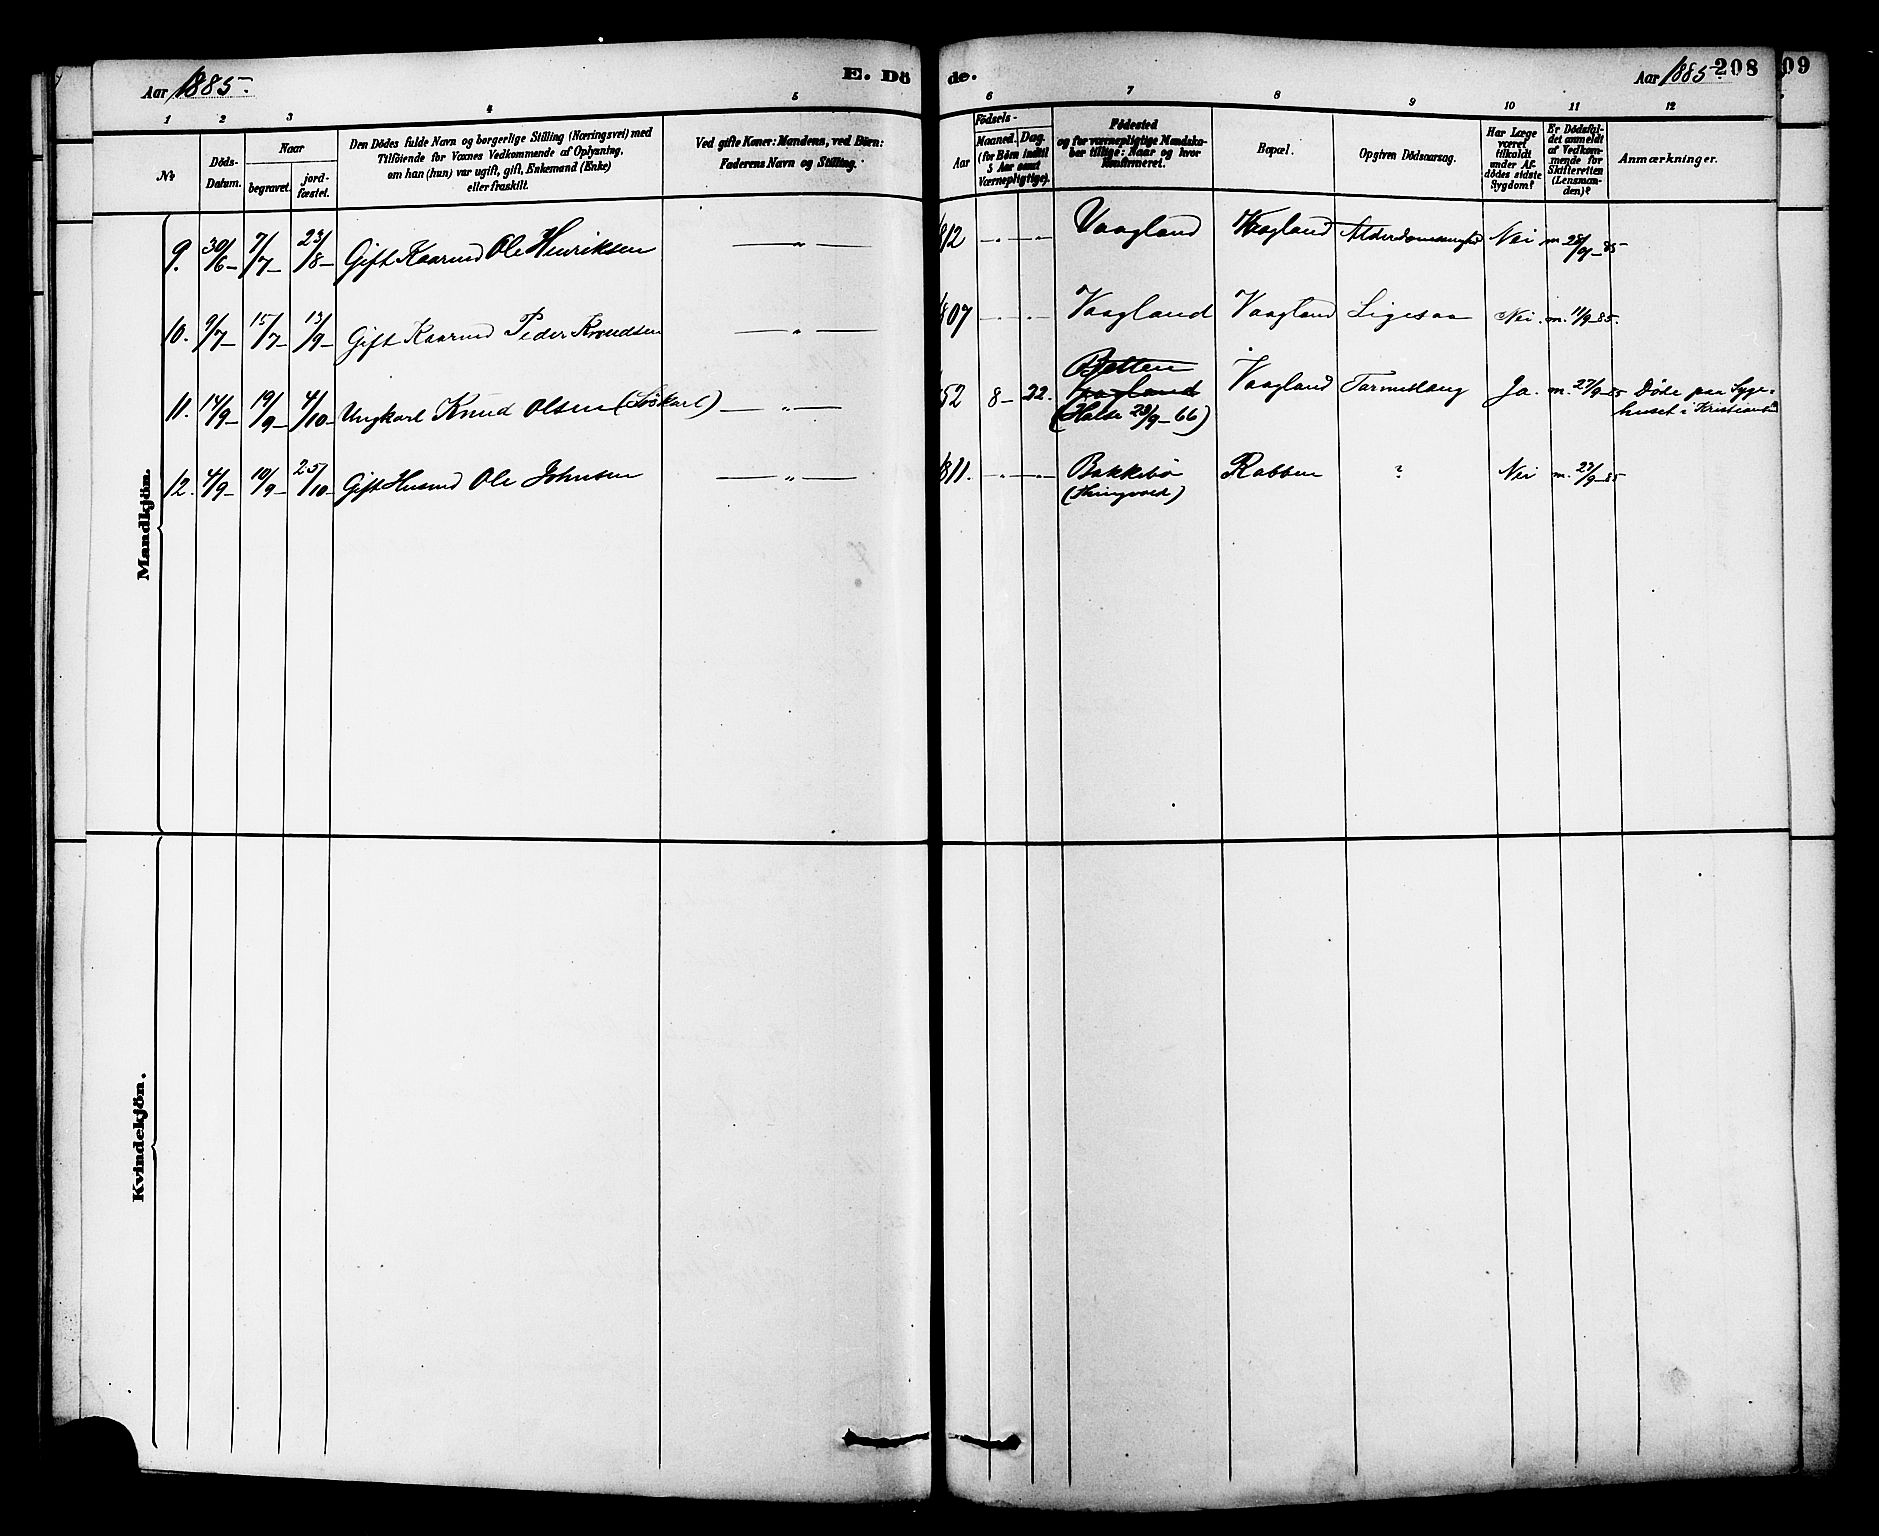 Aar 1885.
E. Dö
de.
Aar 1885
208
09
1 2 3 4 5 6 7 8 9 10 11 12
No
Döds-
Datum.
Naar
begravet.
jord-
fæstet.
Den Dödes fulde Navn og borgerlige Stilling (Næringsvei) med
Tilföiende for Voxnes Vedkommende af Oplysning,
om han (hun) var ugift, gift, Enkemand (Enke)
eller fraskilt.
Ved gifte Koner: Mandens, ved Börn:
Faderens Navn og Stilling.
Födsels-
Aar
Maaned.
Dag.
(for Börn indtil
5 Aar samt
Værnepligtige).
Födested
og for værnepligtige Mandska-
ber tillige: Naar og hvor
konfirmeret.
Bopæl.
Opgiven Dödsaarsag.
Har Læge
været
tilkaldt
under Af-
dödes sidste
Sygdom?
Er Dödsfal-
det anmeldt
af Vedkom-
mende for
Skifteretten
(Lensman-
den)?
Anmærkninger.
Mandkjön.
9. 30/6- 7/7- 23/8- Gift Kaarmd Ole Henriksen — " — 812 -"- -"- Vaagland Vaagland Nei m. 28/9-85
10. 9/7- 15/7- 13/9- Gift Kaarmd Peder Knudsen — " — 807 Vaagland Vaagland Ligesaa Nei. m. 11/9-85.
Betten
11. 14/9- 19/9- 4/10- Ungkarl Knud Olsen (Löskarl) — " — 52 8- 22. Vaagland Vaagland Tarmeslyng Ja. m. 27/9-85 Döde paa Syge-
(Halse 23/9-66) huset i Kristians
12. 4/9- 10/9- 25/10- Gift Husmd Ole Johnsen — " — 811. -"- -"- Bakkebö Rabben ? Nei m. 23/9-85
(Thingvold)
Kvindekjön.